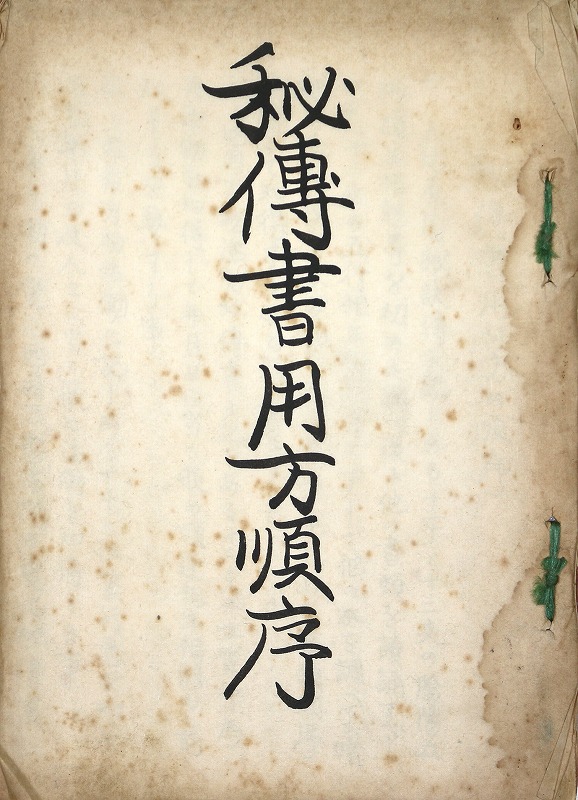 秘傳書用方順序